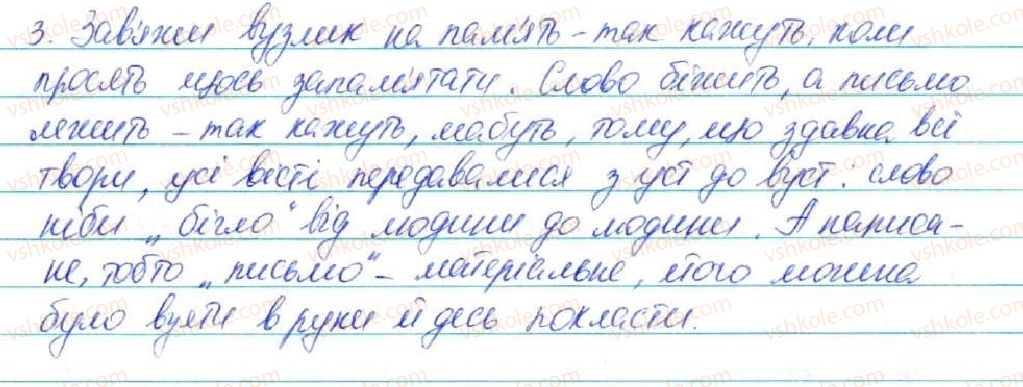 3. Зав'яжи вузлик на пам'ять – так кажуть, коли
просять щось запам'ятати. Слово біжить, а письмо
лежить – так кажуть, мабуть, тому, що здавна всі
твори, усі вісті передавалися з уст до вуст. Слово
ніби „бігло" від людини до людини. А написа-
не, тобто „письмо" – матеріальне, його можна
було взяти в руки й десь покласти.